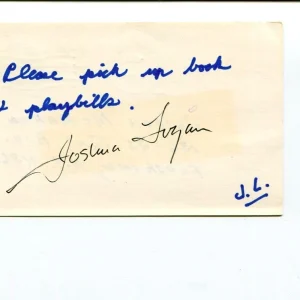 Please pick up book
& playbills.
Joshua Logan
J.L.